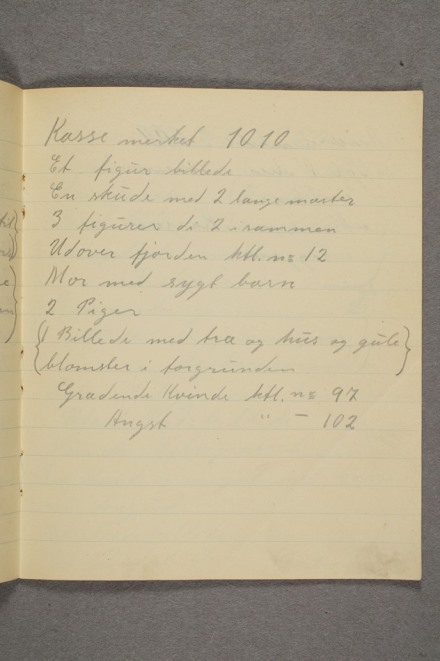 Kasse merket 1010
Et figur billede
En skude med 2 lange master
3 figurer di 2 i rammen
Udover fjorden ktl. nr 12
Mor med sygt barn
2 Piger
(1 Billede med træ og hus og gule)
(blomster i forgrunden
Grædende Kvinde ktl. nr 97
Angst " – 102